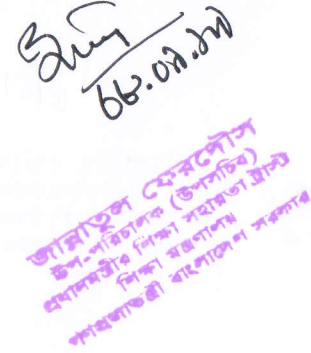 ১৮.০৯.১৭
জান্নাতুল ফেরদৌস
উপ-পরিচালক (উপসচিব)
প্রধানমন্ত্রীর শিক্ষা সহায়তা ট্রাস্ট
শিক্ষা মন্ত্রণালয়
গণপ্রজাতন্ত্রী বাংলাদেশ সরকার